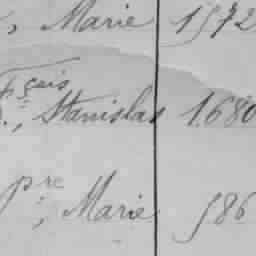 , Marie 1572
Fçais
., Stanislas 1680
pre
, Marie 586